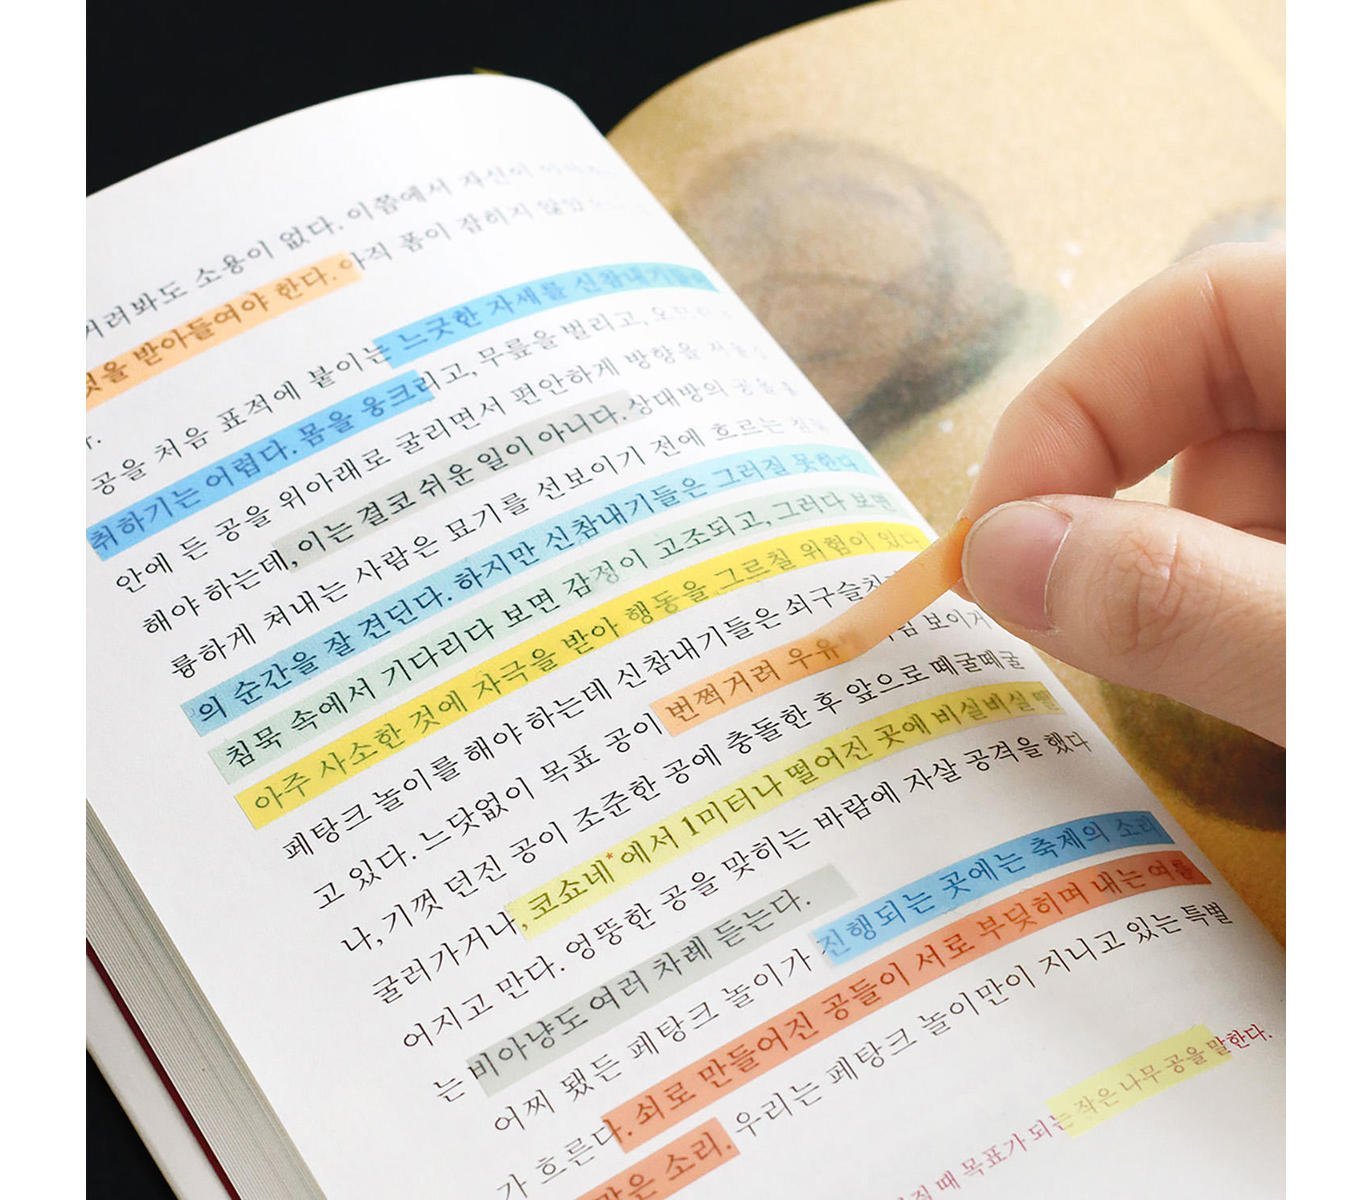 거려봐도 소용이 없다. 이쯤에서 자신이
것을 받아들여야 한다. 아직 폼이 잡히지 않았
다.
공을 처음 표적에 붙이는 느긋한 자세를 신참내기들이
취하기는 어렵다. 몸을 웅크리고, 무릎을 벌리고,
안에 든 공을 위아래로 굴리면서 편안하게 방향을
해야 하는데, 이는 결코 쉬운 일이 아니다. 상대방의 공을
륭하게 쳐내는 사람은 묘기를 선보이기 전에 흐르는 침묵
의 순간을 잘 견딘다. 하지만 신참내기들은 그러질 못한다
침묵 속에서 기다리다 보면 감정이 고조되고, 그러다 보면
아주 사소한 것에 자극을 받아 행동을 그르칠 위험이 있다
페탕크 놀이를 해야 하는데 신참내기들은 쇠구슬치기
고 있다. 느닷없이 목표 공이 번쩍거려 우유 보이거
나, 기껏 던진 공이 조준한 공에 충돌한 후 앞으로 떼굴떼굴
굴러가거나, 코쇼네*에서 1미터나 떨어진 곳에 비실비실 떨
어지고 만다. 엉뚱한 공을 맞히는 바람에 자살 공격을 했다
는 비아냥도 여러 차례 듣는다.
어찌 됐든 페탕크 놀이가 진행되는 곳에는 축제의 소리
가 흐른다. 쇠로 만들어진 공들이 서로 부딪히며 내는 여름
많은 소리. 우리는 페탕크 놀이만이 지니고 있는 특별
때 목표가 되는 작은 나무 공을 말한다.